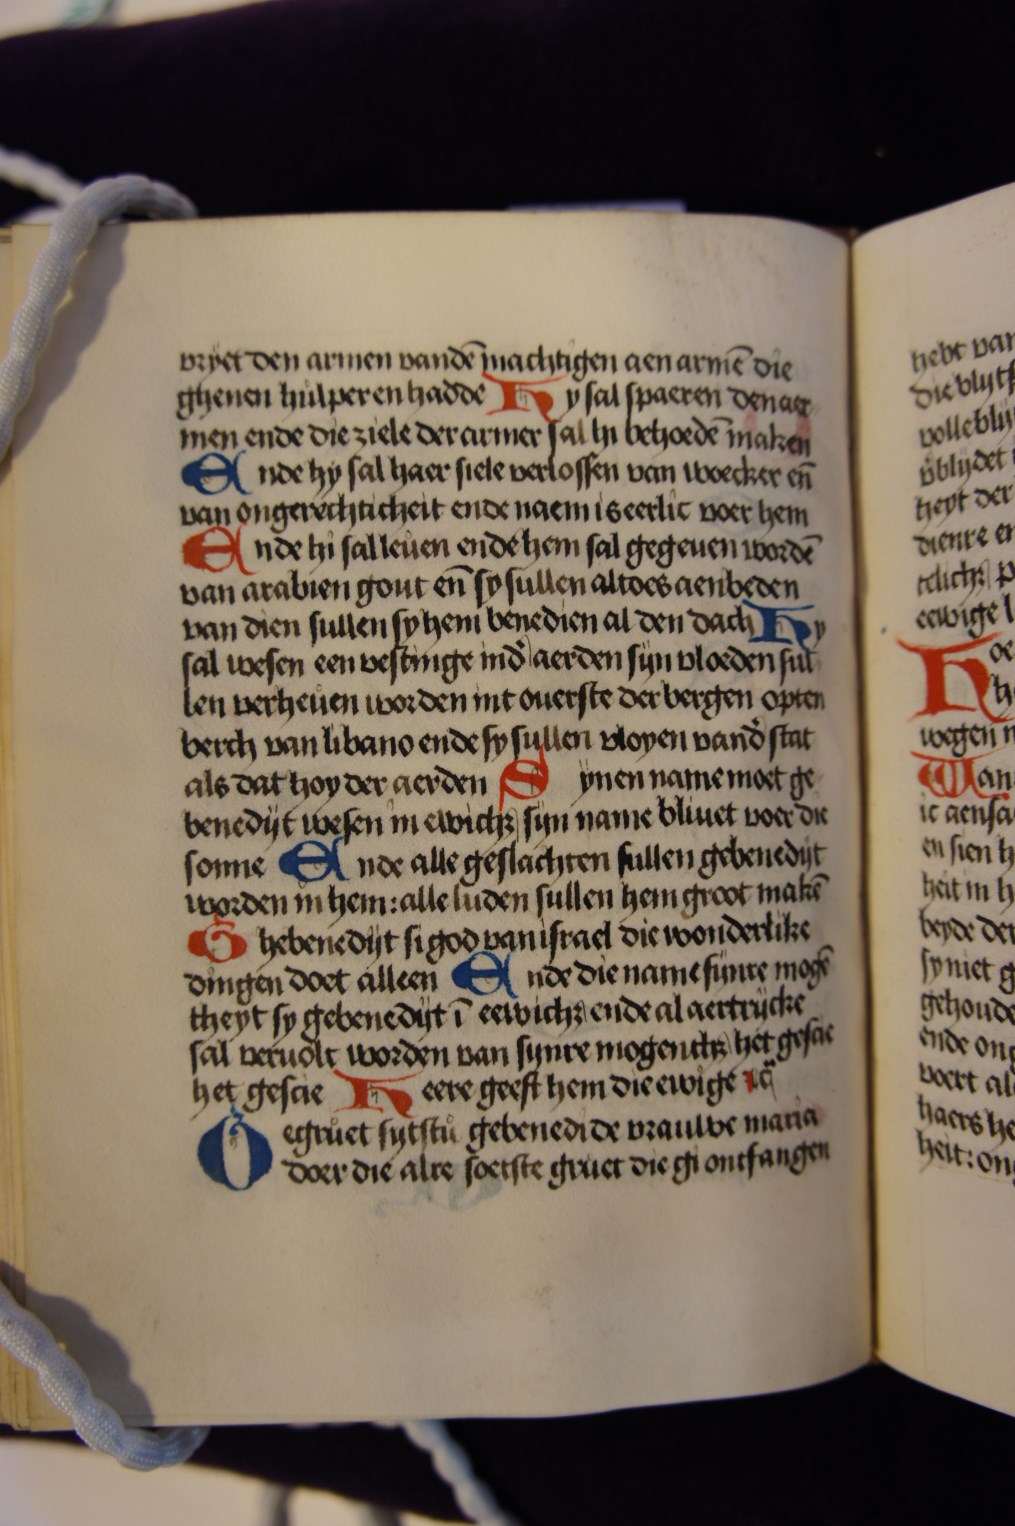 vryet den armen vandē machtigen aen armē die
ghenen hulper en hadde Hy sal spaeren den aer
men ende die ziele der armer sal hi behoedē maken
Ende hy sal haer siele verlossen van woecker en̄
van ongerechticheit ende naem is eerlic voer hem
Ende hi sal leuen ende hem sal gegeuen wordē
van arabien gout en̄ sy sullen altoes aenbeden
van dien sullen sy hem benedien al den dach Hy
sal wesen een vestinge ind̄ aerden syn vloeden sul
len verheuen worden int ouerste der bergen opten
berch van libano ende sy sullen vloyen vand̄ stat
als dat hoy der aerden Synen name moet ge
benedijt wesen in ewichꝫ syn name bliuet voer die
sonne Ende alle geslachten sullen gebenedijt
worden in hem: alle luden sullen hem groot makē
Ghebenedijt si god van israel die wonderlike
dingen doet alleen Ende die name synre mogē
theyt sy gebenedijt ī eewichꝫ ende al aertrijcke
sal veruolt worden van synre mogenthꝫ het gescie
het gescie Heere geeft hem die ewige
Oegruet sytstu gebenedide vrauwe maria
doer die alre soetste gruet die gi ontfangen
hebt van
die blyts
volle bly
v̄blydet
heyt der
dienre en
telichꝫ p
eewige l
Hoe
h
wegen m
Wan
ic aensa
en sien h
heit in h
beyde der
sy niet g
gehoude
ende ong
voert al
haers he
heit: ong